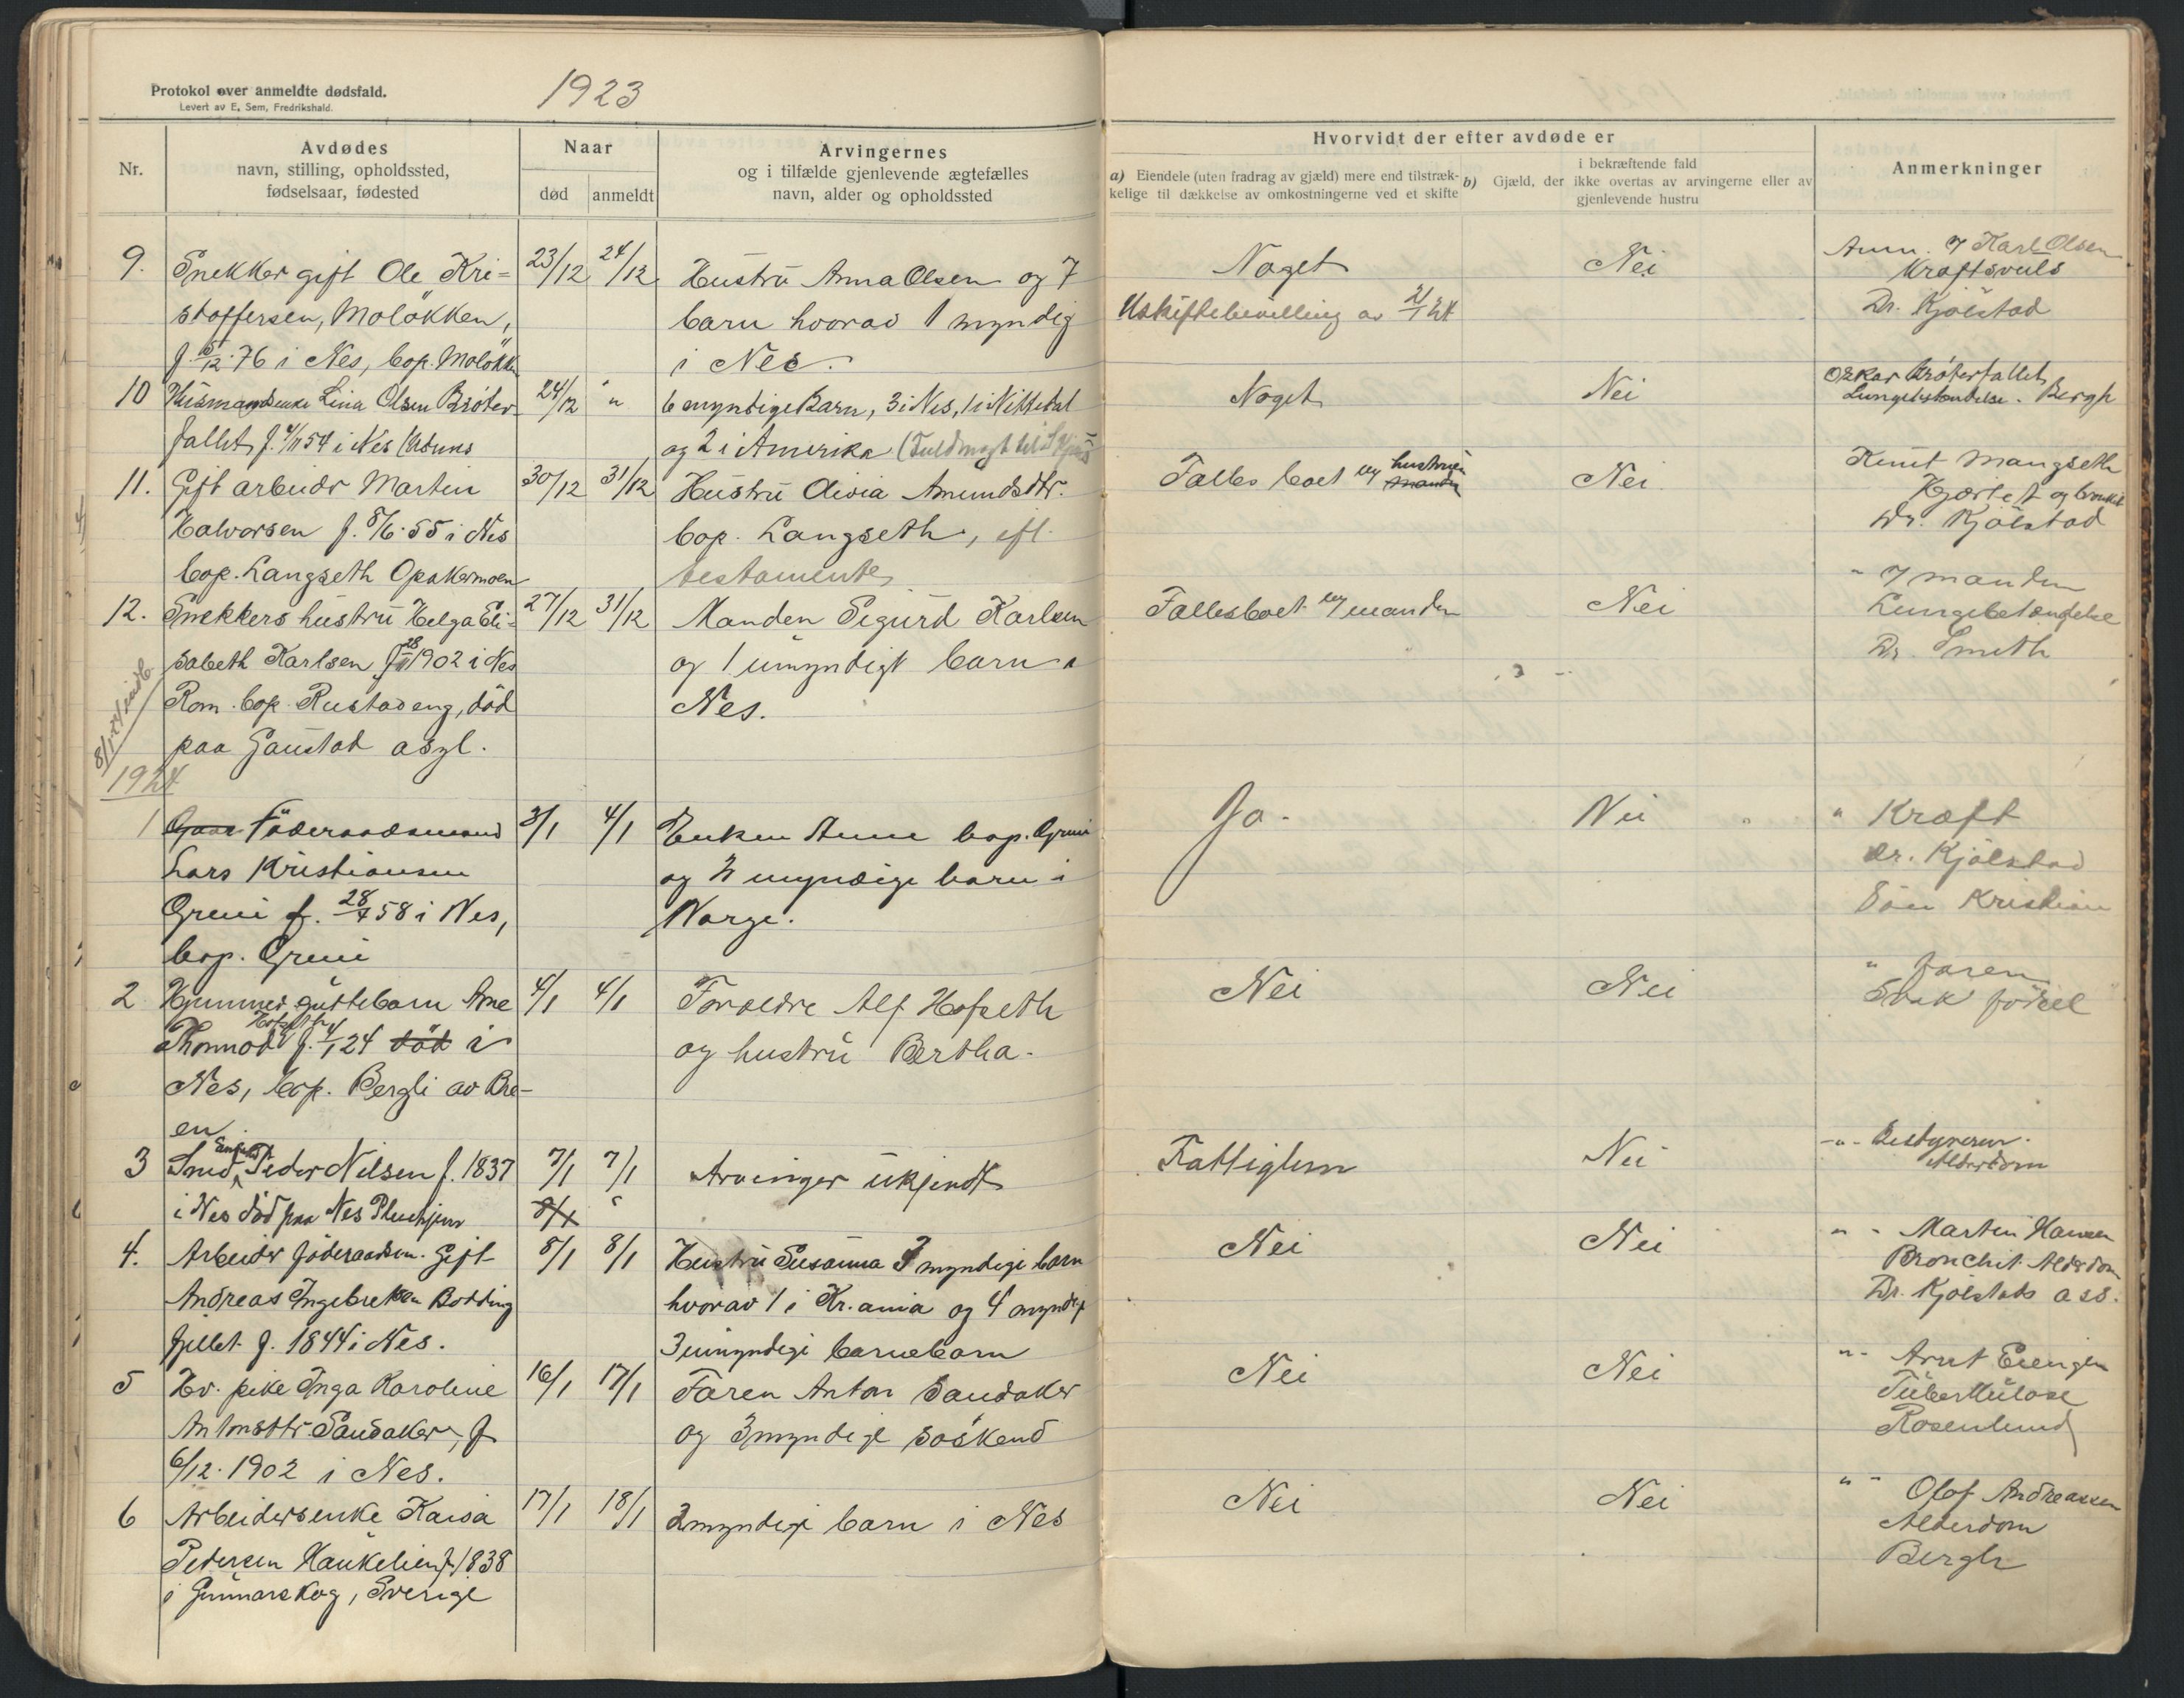 Protokol over anmeldte dødsfald.
Levert av E. Sem, Fredrikshald.
1923
Nr.
Avdødes
navn, stilling, opholdssted,
fødselsaar, fødested
Naar
død
anmeldt
Arvingernes
og i tilfælde gjenlevende ægtefælles
navn, alder og opholdssted
Hvorvidt der efter avdøde er
a) Eiendele (uten fradrag av gjæld) mere end tilstræk-
kelige til dækkelse av omkostningerne ved et skifte
i bekræftende fald
b) Gjæld, der ikke overtas av arvingerne eller av
gjenlevende hustru
Anmerkninger
9.
Snekker gift Ole Kri=
stoffersen, Moløkken,
f. /12 76 i Nes, bop. Moløkk
23/12
24/12
Hustru Anna Olsen og 7
barn hvorav 1 myndig
i Nes.
Noget
Uskiftebevilling av 2/1 24
Nei
Anm. Karl Olsen
Kræftsvuls
Dr. Kjølstad
10
Husmandsenke Lina Olsen Brøter
fallet f. 4/11 54 i Nes
24/12
"
6 myndige Barn, 3 i Nes, 1 i Nittedal
og 2 i Amerika (Fuldmagt til
Noget
Nei
Oskar Brøterfallet
Lungebetændelse. Bergh
11.
Gift arbeider Martin
Halvorsen f. 8/6 55 i Nes
bop. Langseth Opakermoen
30/12
31/12
Hustru Olivia Amundsdtr.
bop. Langseth, efl.
testamente
Fælles boet m/ hustruen
manden
Nei
Knut Mangseth
Hjertef og bronkit
Dr. Kjølstad
12.
Snekkers hustru Helga Eli=
sabeth Karlsen f 28/ 1902 i Nes
Rom. bop. Rustadeng, død
paa Gaustad asyl.
27/12
31/12
Manden Sigurd Karlsen
og 1 umyndigt barn i
Nes.
Fællesboet m/ manden
Nei
" manden
Lungebetændelse
Dr. Smith
8/1 24 indb
1924
1
Gaar Føderaadsmand
Lars Kristiansen
Greni f. 28/7 58 i Nes,
bop. Greni
3/1
4/1
Enken Anne bop. Greni
og myndige barn i
Norge.
Ja.
Nei
" Kræft
dr. Kjølstad
Søn Kristian
2
Hjemmed guttebarn Arne
Thormod Hofseth f. 4/1 24 død i
Nes, bop. Bergli av Bre-
en
4/1
4/1
Foreldre Alf Hofseth
og hustru Bertha.
Nei
Nei
" faren
Svak fødsel
3
Smed, Peder Nilsen f. 1837
i Nes død paa Nes Pleiehjem
7/1
7/1
8/1
"
Arvinger ukjendt
Fattiglem
Nei
-"- Bestyreren.
Alderdom
4.
Arbeider føderaadsm. Gift
Andreas Ingebretsen Bodding
fjellet f. 1844 i Nes.
8/1
8/1
Hustru Susanna 3 myndige barn
hvorav 1 i Kr.ania og 4 myndige
3 umyndige barnebarn
Nei
Nei
" - Martin Hansen
Bronchit Alderdom
Dr. Kjølstads ass.
5
Ev. pike Inga Karoline
Antonsdtr. Sandaker, f
6/12 1902 i Nes.
16/1
17/1
Faren Anton Sandaker
og 3 myndige søskend
Nei
Nei
"- Arnt Eiengen
Tuberkulose
Rosenlund
6
Arbeidersenke Kaisa
Pedersen Haukelien f 1838
i Gunnarskog, Sverige
17/1
18/1
2 myndige barn i Nes
Nei
Nei
" " Olof Andreassen
Alderdom
Bergh